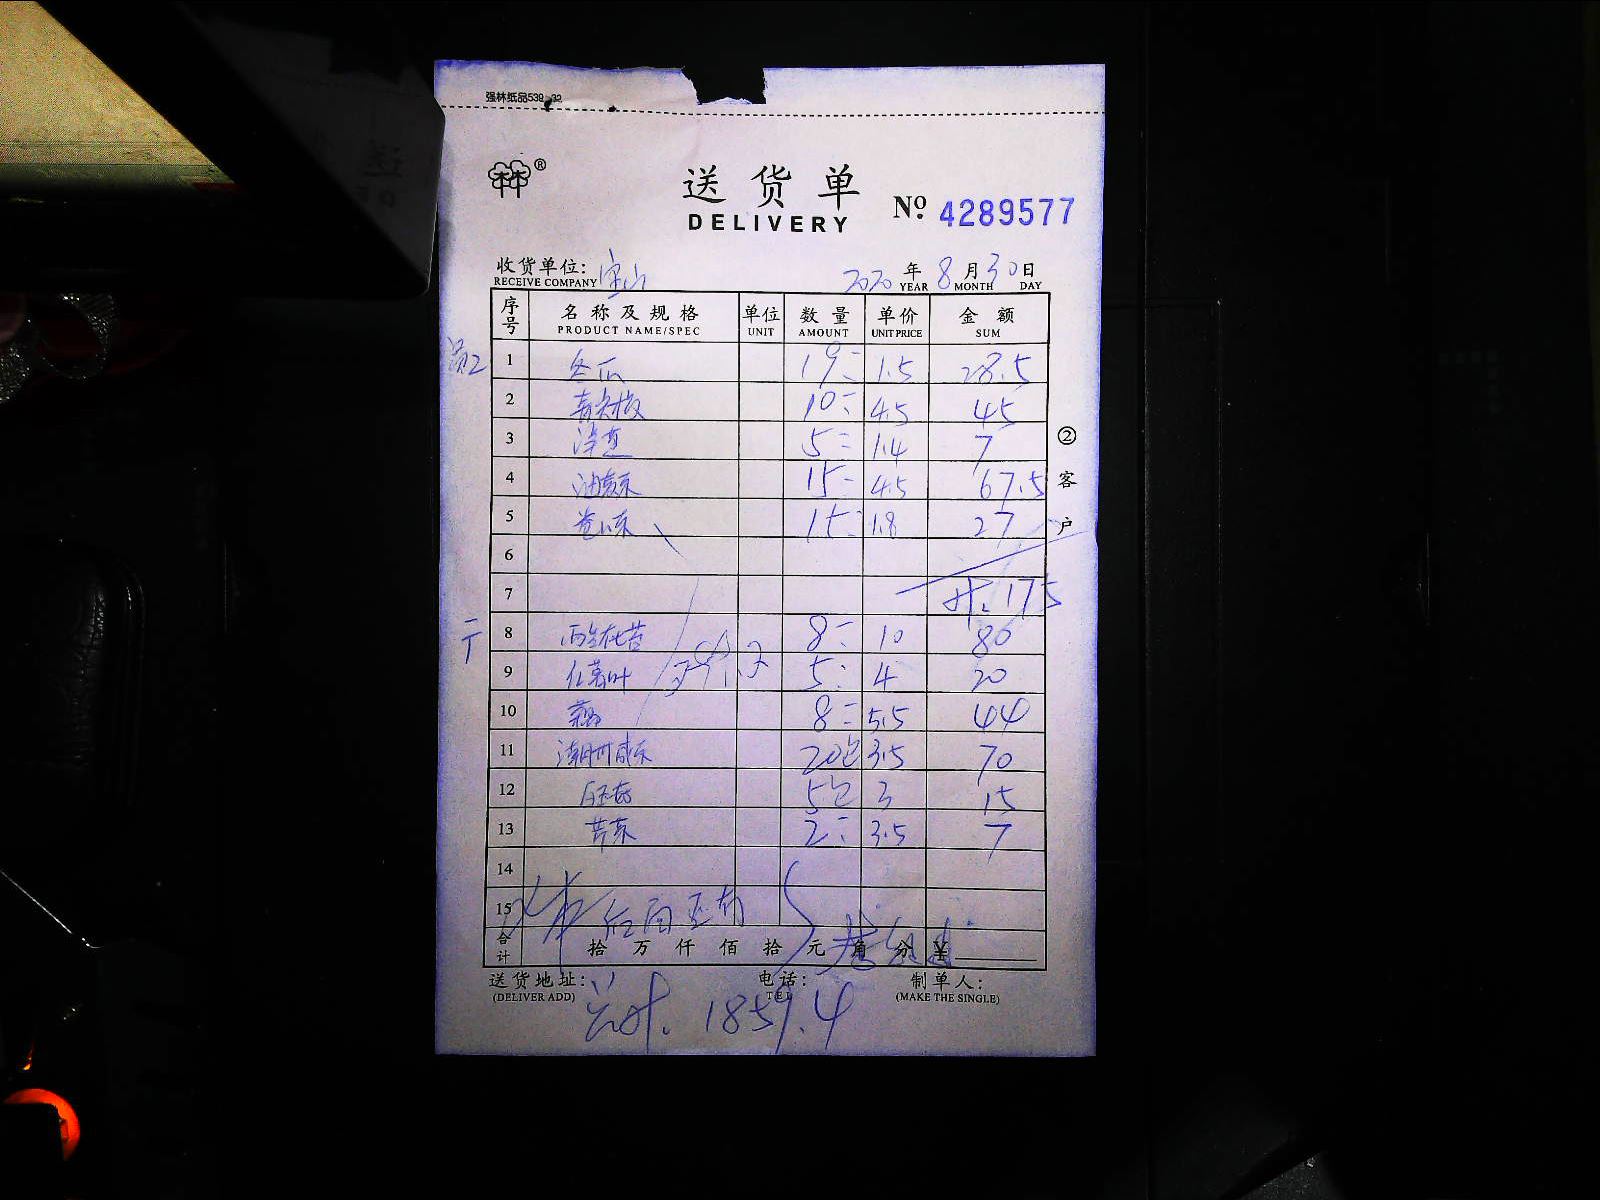 强林纸品539-32
送货单
DELIVERY
№ 4289577
收货单位: 宝山 2020 年 8 月 30 日
RECEIVE COMPANY YEAR MONTH DAY
序号 名称及规格 单位 数量 单价 金额
PRODUCT NAME/SPEC UNIT AMOUNT UNIT PRICE SUM
1 冬瓜 19= 1.5 28.5
2 青尖椒 10= 4.5 45
3 洋芋 5= 1.4 7
4 油麦菜 15= 4.5 67.5
5 卷心菜 15= 1.8 27
6
7 计.175
8 西兰花苔 8= 10 80
9 红薯叶 5= 4 20
10 藕 8= 5.5 44
11 潮州咸菜 20包 3.5 70
12 5包 3 15
13 苦菜 2= 3.5 7
14
15
② 客户
合计 拾 万 仟 佰 拾 元 角 分 ¥
送货地址: 电话: 制单人:
(DELIVER ADD) TEL (MAKE THE SINGLE)
共计. 1859.4